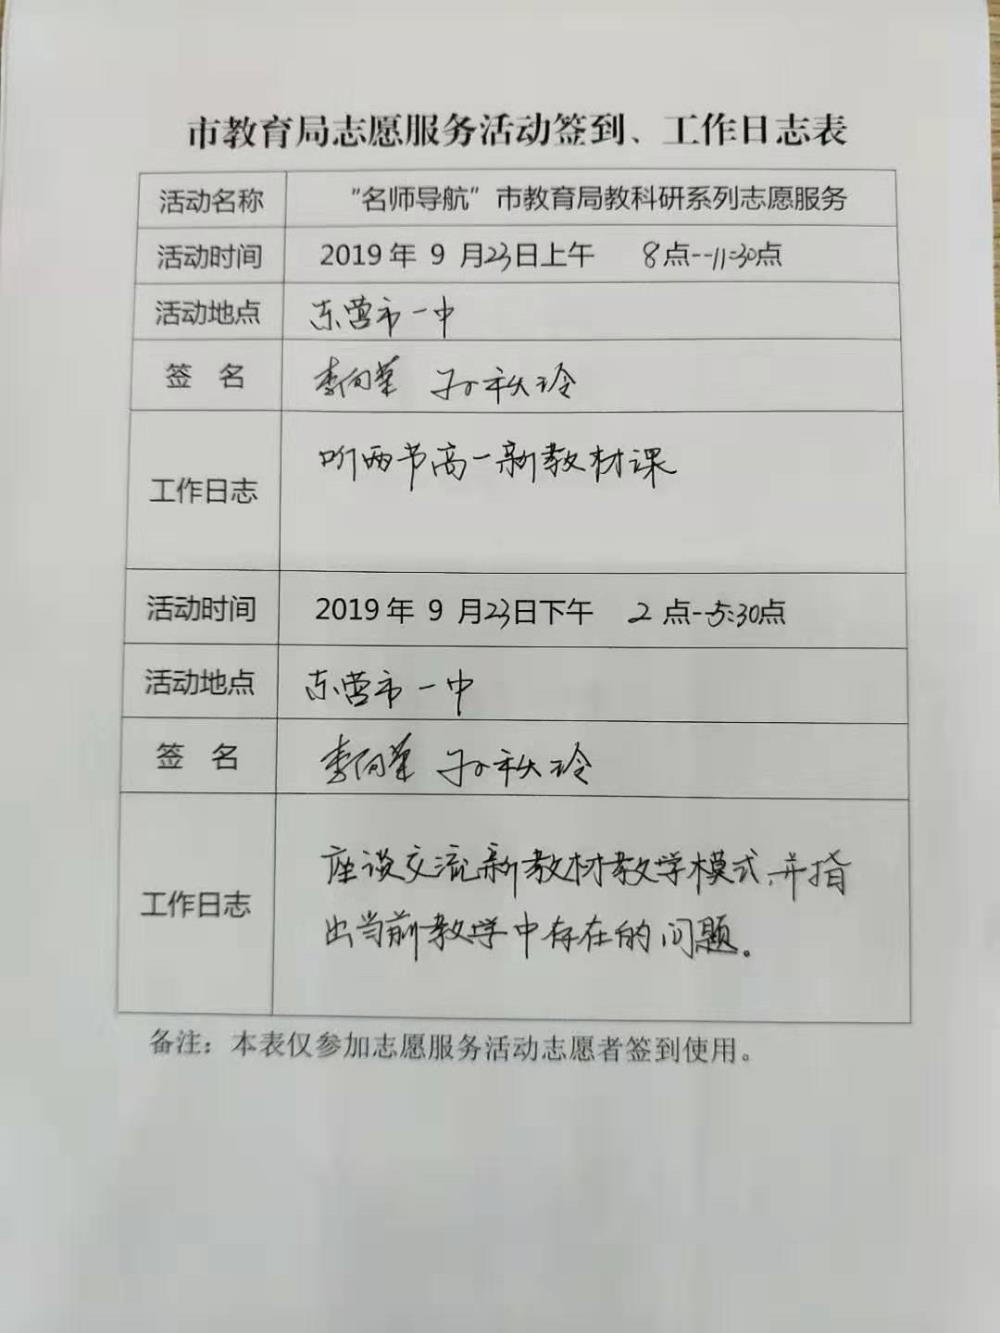 市教育局志愿服务活动签到、工作日志表
活动名称 “名师导航”市教育局教科研系列志愿服务
活动时间 2019年 9 月23日上午 8点--11:30点
活动地点 东营市一中
签 名 李向荣 孙秋玲
工作日志 听两节高一新教材课
活动时间 2019年 9 月23日下午 2 点--5:30点
活动地点 东营市一中
签 名 李向荣 孙秋玲
工作日志 座谈交流新教材教学模式,并指
出当前教学中存在的问题。
备注：本表仅参加志愿服务活动志愿者签到使用。